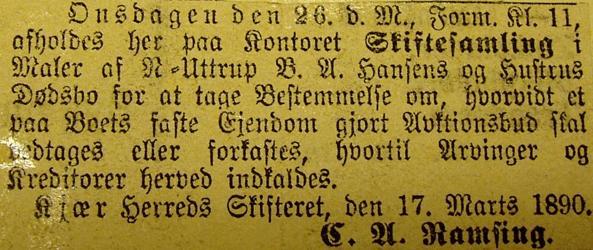 Onsdagen den 26. d. M., Form. Kl. 11,
afholdes her paa Kontoret Skiftesamling i
Maler af N-Uttrup B. A. Hansens og Hustrus
Dødsbo for at tage Bestemmelse om, hvorvidt et
paa Boets faste Ejendom gjort Avktionsbud skal
vedtages eller forkastes, hvortil Arvinger og
Kreditorer herved indkaldes.
Kjær Herreds Skifteret, den 17. Marts 1890.
C. A. Ramsing.